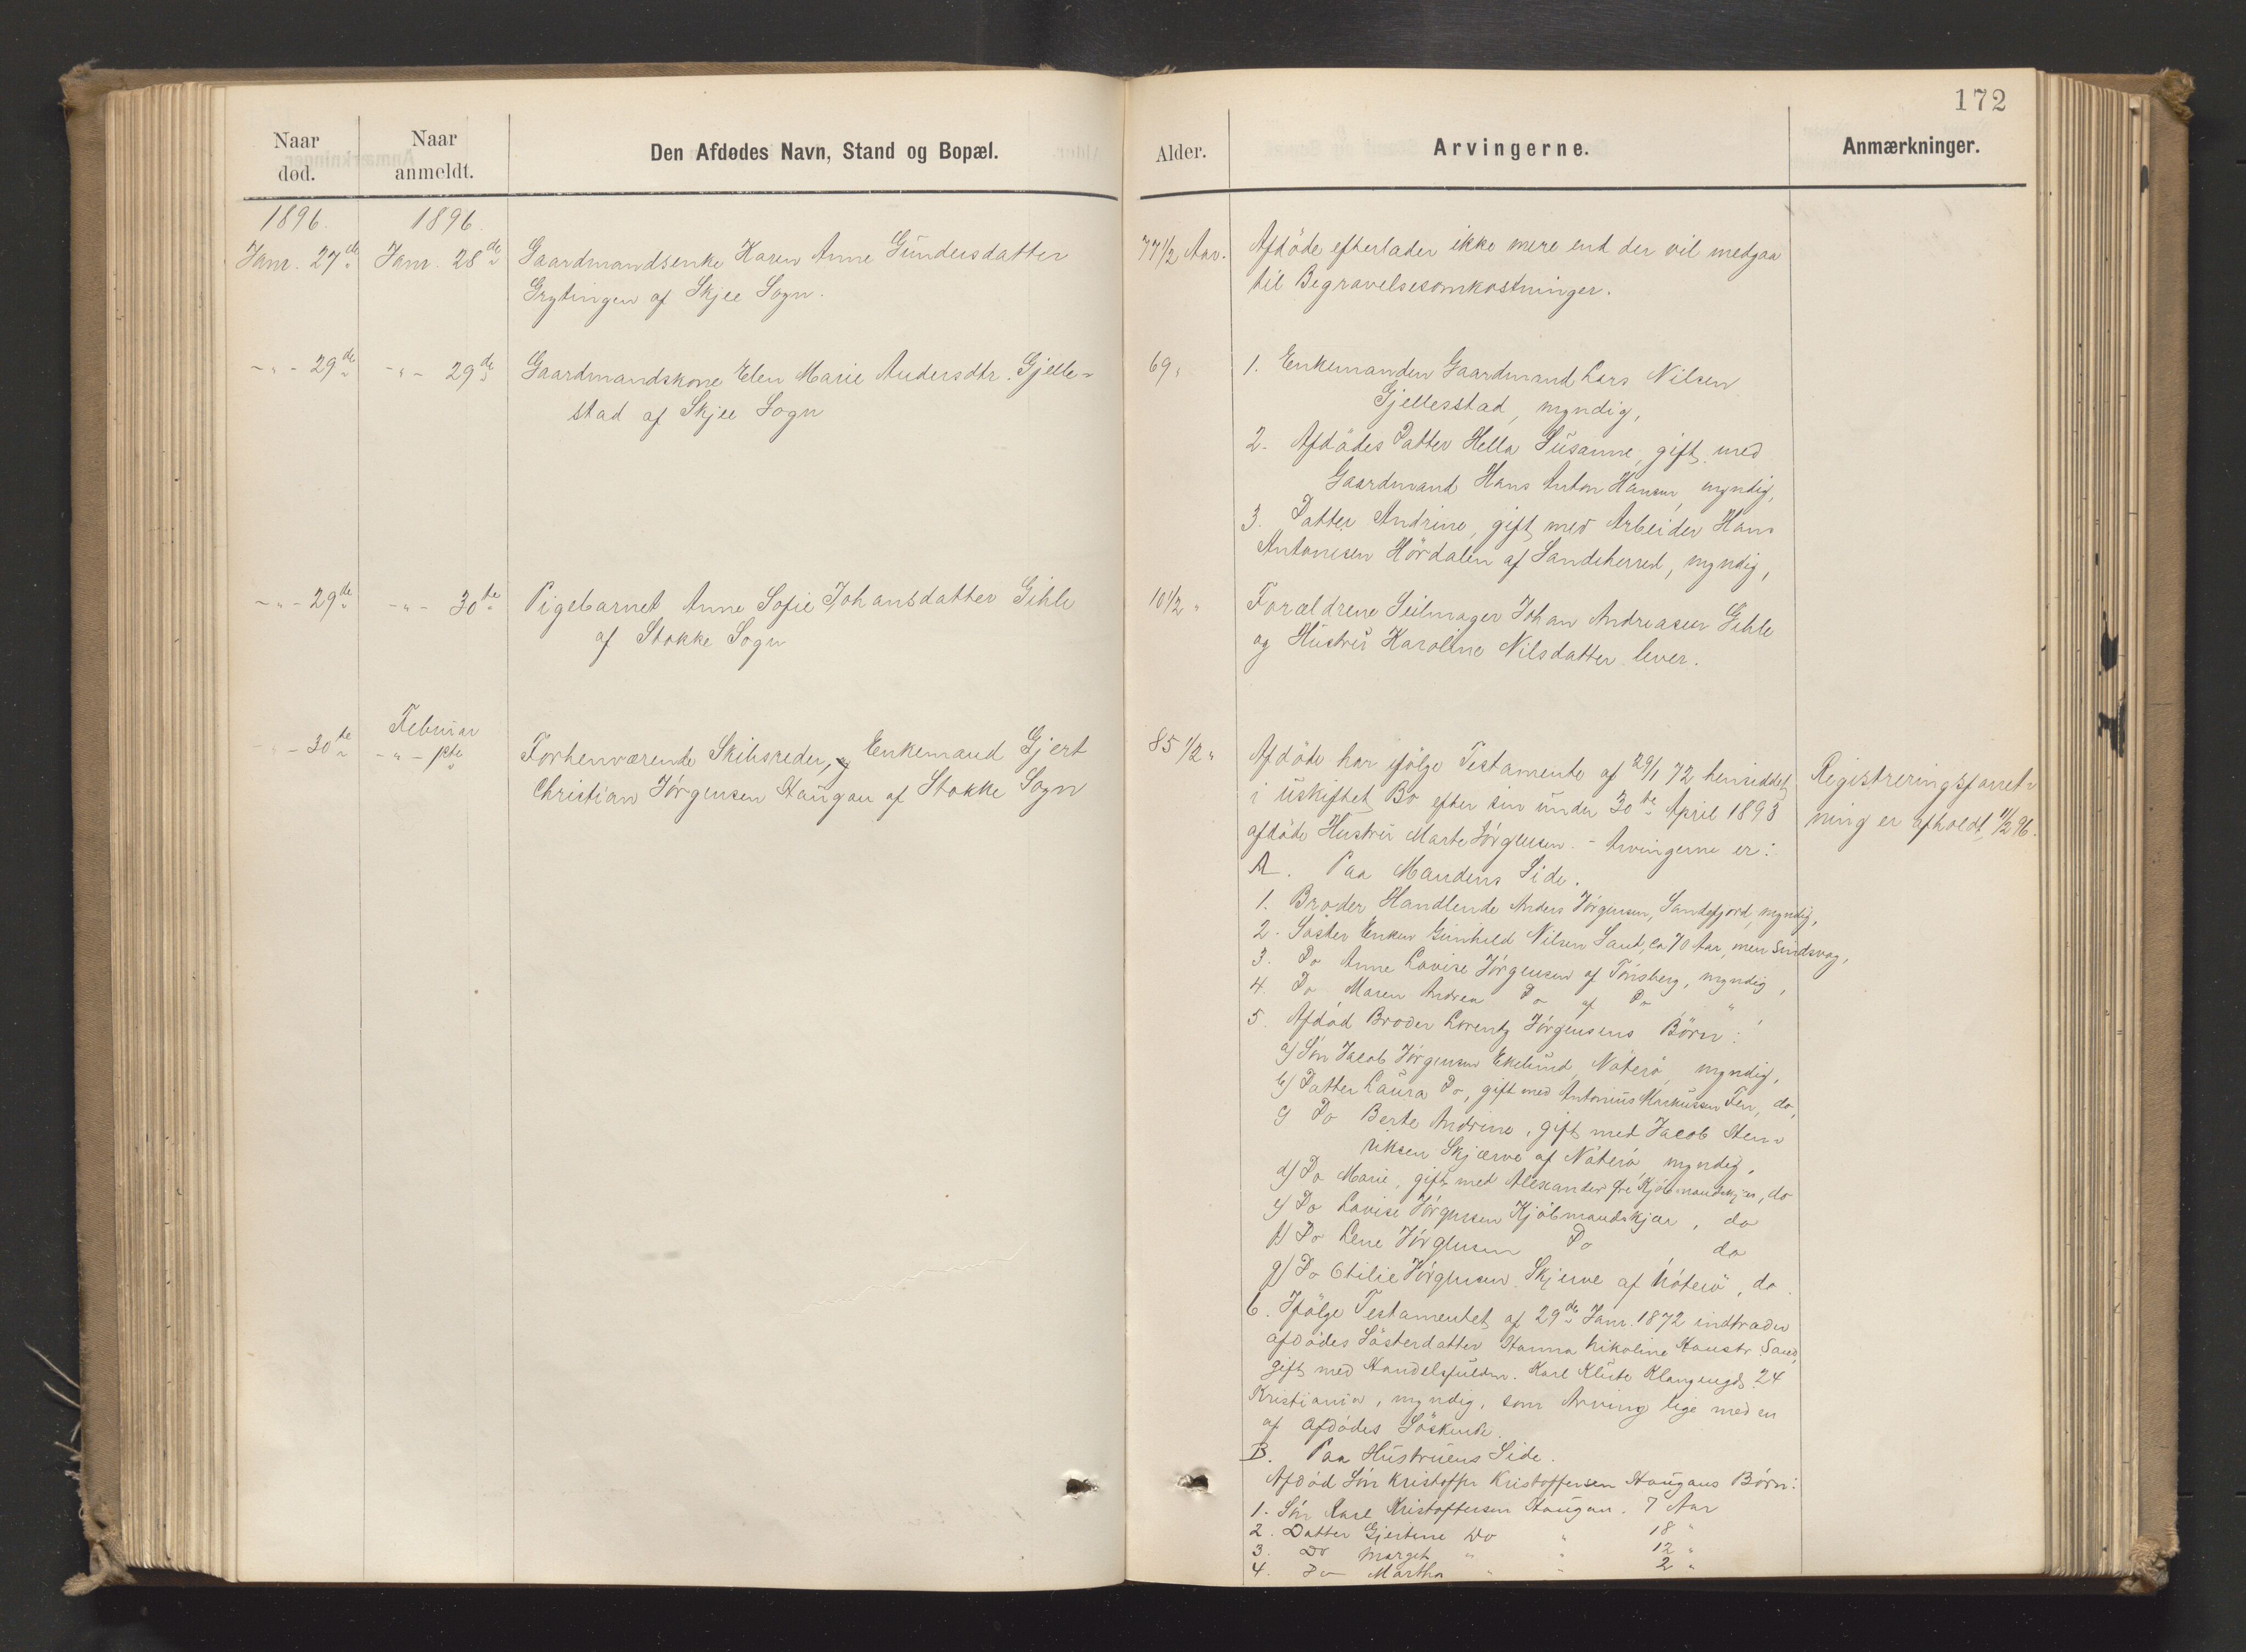 172
Naar død.
Naar anmeldt.
Den Afdødes Navn, Stand og Bopæl.
Alder.
Arvingerne.
Anmærkninger.
1896. 1896
Janr. 27de Janr. 28de Gaardmandsenke Karen Anne Gundersdatter
Grytingen af Skjee Sogn.
77 1/2 Aar. Afdöde efterlader ikke mere end der vil medgaa
til Begravelsesomkostninger.
-"- 29de -"- 29de Gaardmandskone Elen Marie Andersdtr. Gjelle-
stad af Skjee Sogn
69 " 1. Enkemanden Gaardmand Lars Nilsen
Gjellesstad, myndig,
2. Afdödes Datter Hella Susanne, gift med
Gaardmand Hans Anton Hansen, myndig,
3. Datter Andrine, gift med Arbeider Hans
Antonesen Hördalen af Sandeherred, myndig,
-"- 29de -"- 30te Pigebarnet Anne Sofie Johansdatter Gihle
af Stokke Sogn
10 1/2 " Forældrene Seilmager Johan Andreasen Gihle
og Hustru Karoline Nilsdatter lever.
-"- 30te Februar
-"- 1ste Forhenværende Skibsreder, og Enkemand Gjert
Christian Jörgensen Haugan af Stokke Sogn
85 1/2 " Afdöde har ifölge Testamente af 29/1 72 hensiddet
i uskiftet Bo efter sin under 30te April 1893
afdöde Hustru Marte Jörgensen. - Arvingerne er:
A. Paa Mandens Side.
1. Broder Handlende Anders Jörgensen, Sandefjord, myndig,
2. Söster Enken Gunhild Nilsen Sand, ca 70 Aar, men sindsvag,
3. Do Anne Lovise Jörgensen af Tönsberg, myndig,
4. Do Maren Andrea Do af Do, " ,
5. Afdöd Broder Lorentz Jörgensens Börn:
a) Sön Jacob Jörgensen Ekelund, Nöterö, myndig,
b) Datter Laura Do, gift med Antonius Markussen Fen, do,
c) Do Berte Andrine, gift med Jacob Hen-
riksen Skjerve af Nöterö, myndig,
d) Do Marie, gift med Alexander Kjöbmandskjær, do
e) Do Lovise Jörgensen Kjöbmandskjær, do
f) Do Lene Jörgensen Do do
g) Do Otilie Jörgensen Skjerve af Nöterö, do.
6. Ifölge Testamentet af 29de Janr. 1872 indtræder
afdödes Sösterdatter Hanna Nikoline Hanstr. Sand,
gift med Handelsfuldm. Karl Klute 24
Kristiania, myndig, som Arving lige med en
af Afdödes Söskende.
B. Paa Hustruens Side.
Afdöd Sön Kristoffer Kristoffersen Haugans Börn:
1. Sön Karl Kristoffersen Haugan. 7 Aar
2. Datter Gjertine Do " 18 "
3. Do Marget " " 12 "
4. Do Martha " " 2 "
Registreringsforret-
ning er afholdt 11/2 96.